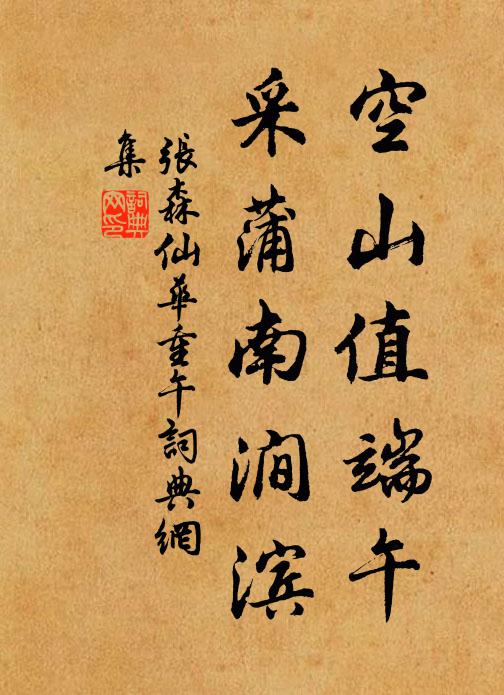 空山值端午
采蒲南澗滨
張森仙華重午詞典網
集
詞典网印